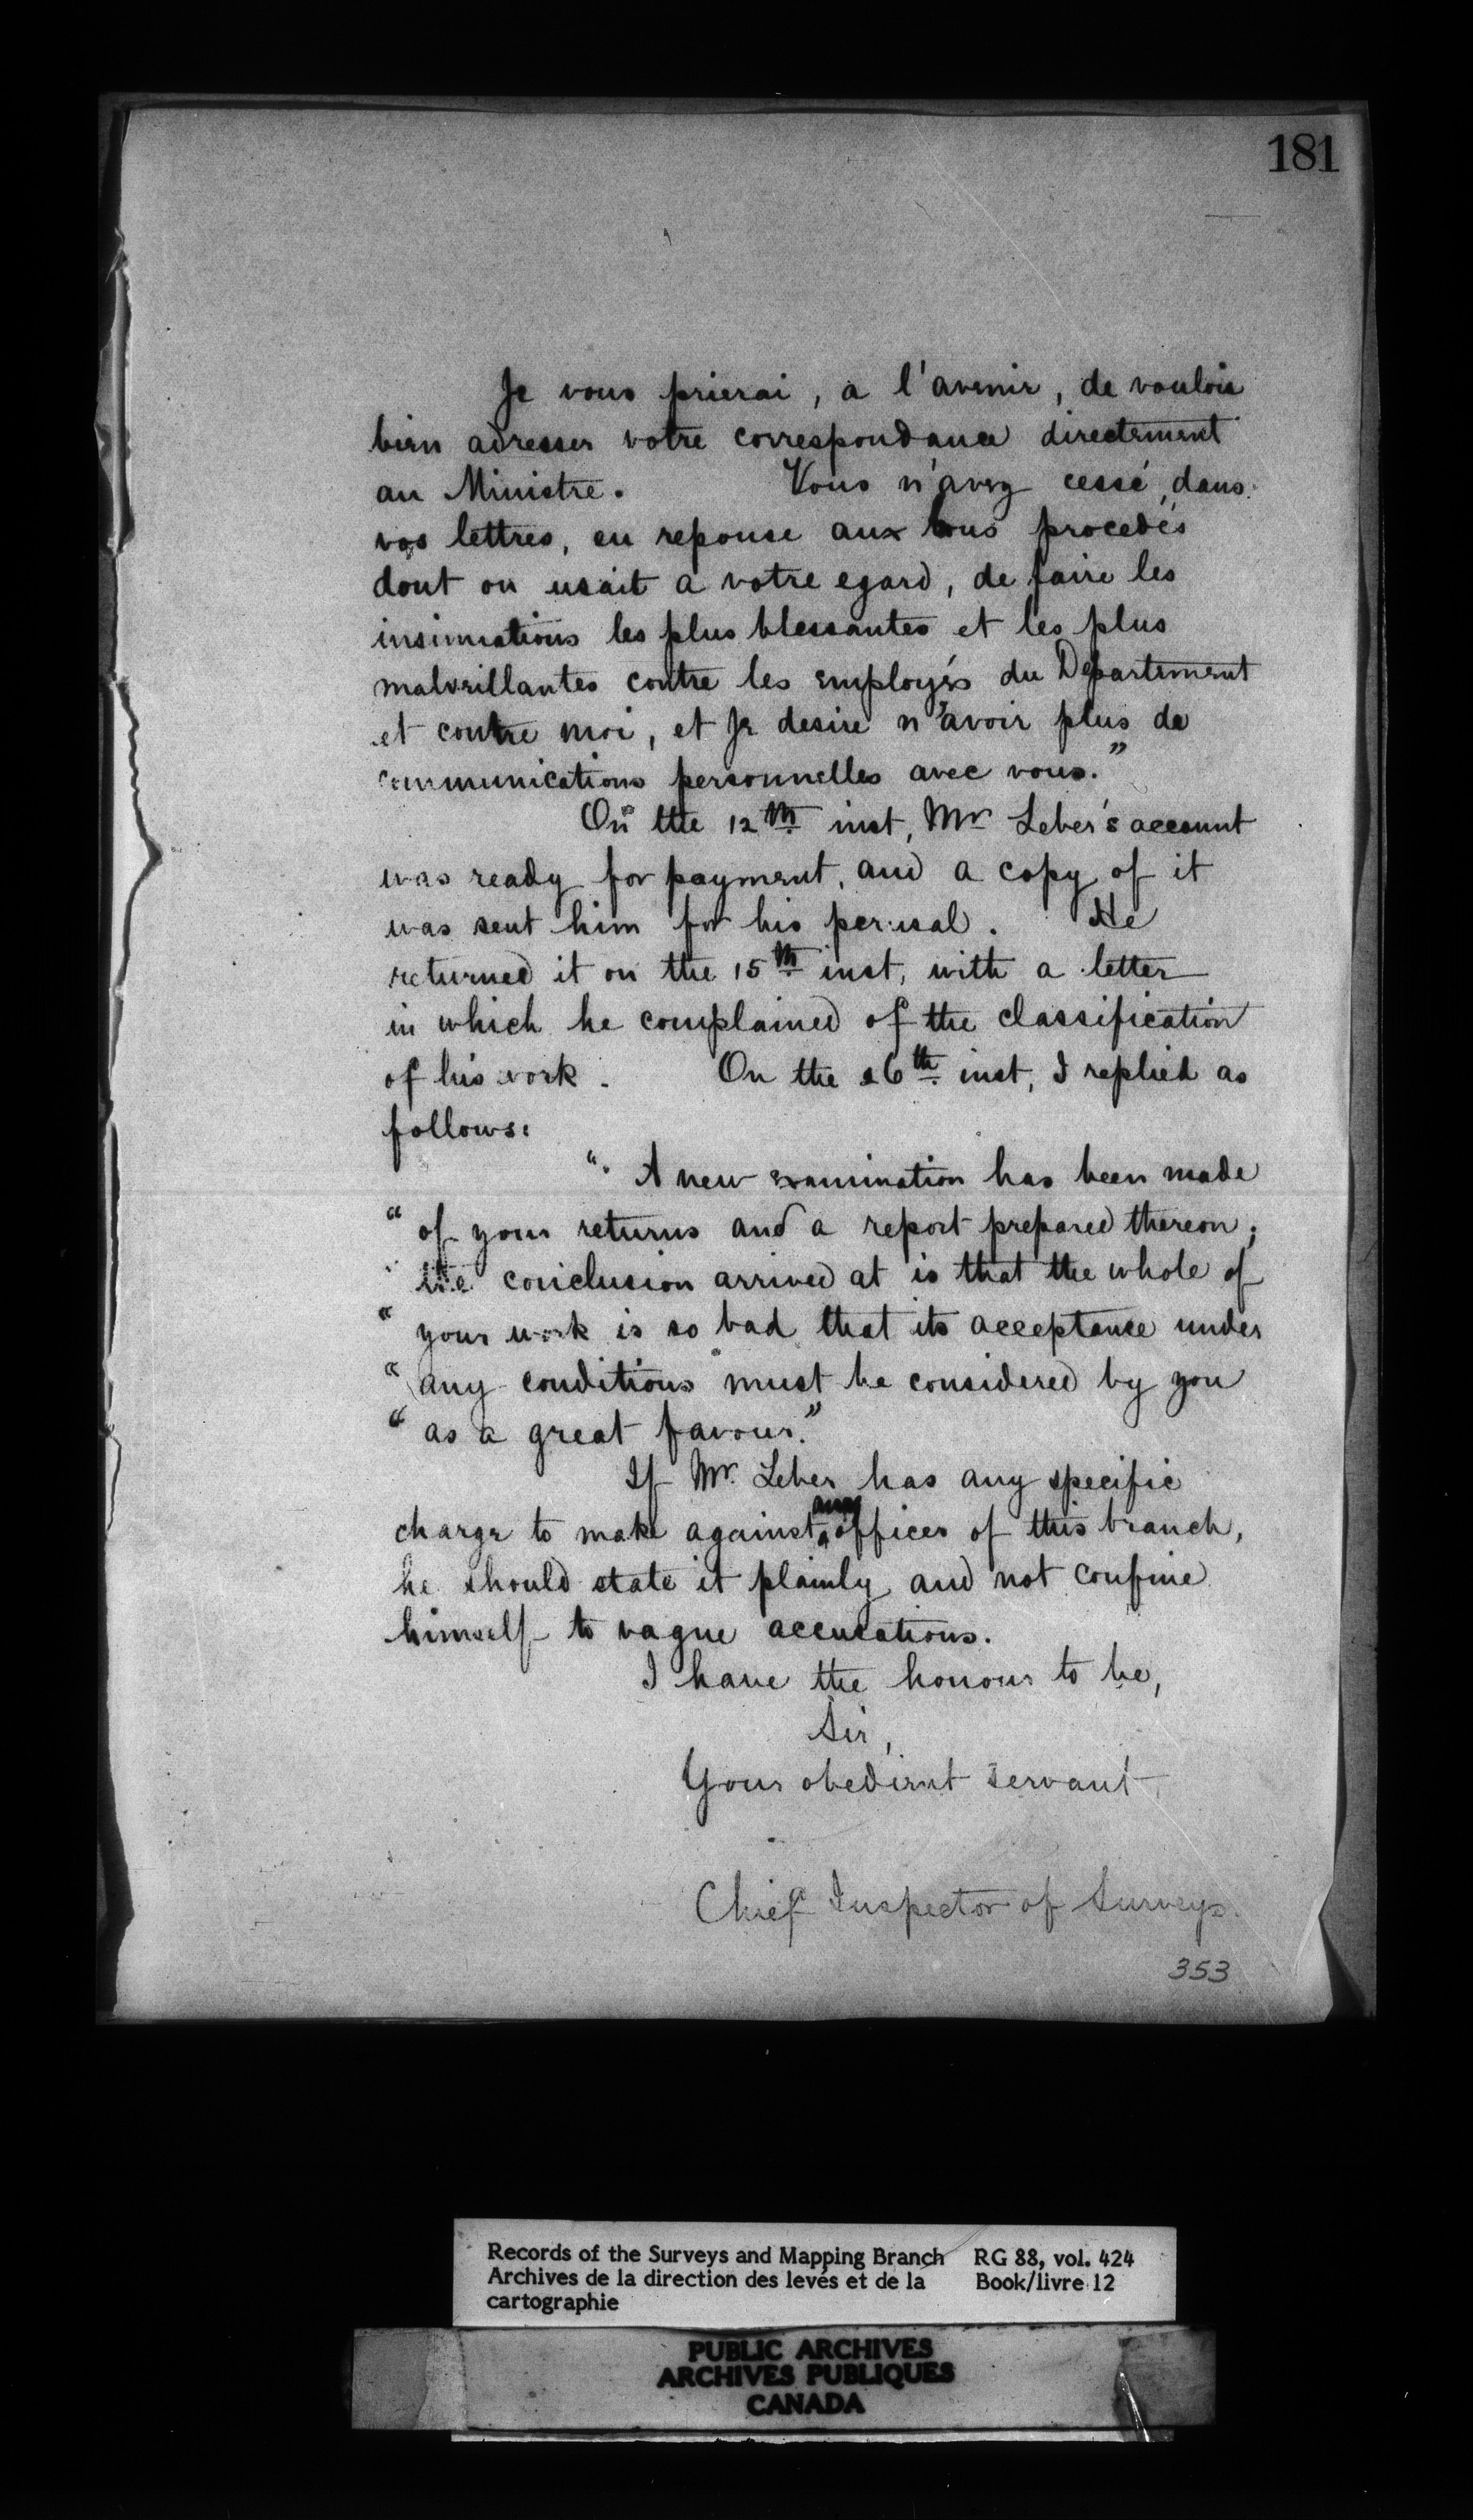 181
Je vous prierai, a l'avenir, de vouloir
bien adresser votre correspondance directement
au Ministre. Vous n'avez cessé, dans
vos lettres, en reponse aux bons procedés
dont on usait a votre egard, de faire les
insinuations les plus blessantes et les plus
malveillantes contre les employés du Departement
et contre moi, et je desire n'avoir plus de
communications personnelles avec vous."
On the 12th inst, Mr Leber's account
was ready for payment, and a copy of it
was sent him for his perusal. He
returned it on the 15th inst, with a letter
in which he complained of the classification
of his work. On the 26th inst, I replied as
follows:
" A new examination has been made
" of your returns and a report prepared thereon;
" the conclusion arrived at is that the whole of
" your work is so bad that its acceptance under
" any conditions must be considered by you
" as a great favour."
If Mr. Leber has any specific
charge to make against any officer of this branch,
he should state it plainly and not confine
himself to vague accusations.
I have the honour to be,
Sir,
Your obedient servant
Chief Inspector of Surveys.
353
Records of the Surveys and Mapping Branch RG 88, vol. 424
Archives de la direction des levés et de la Book/livre 12
cartographie
PUBLIC ARCHIVES
ARCHIVES PUBLIQUES
CANADA